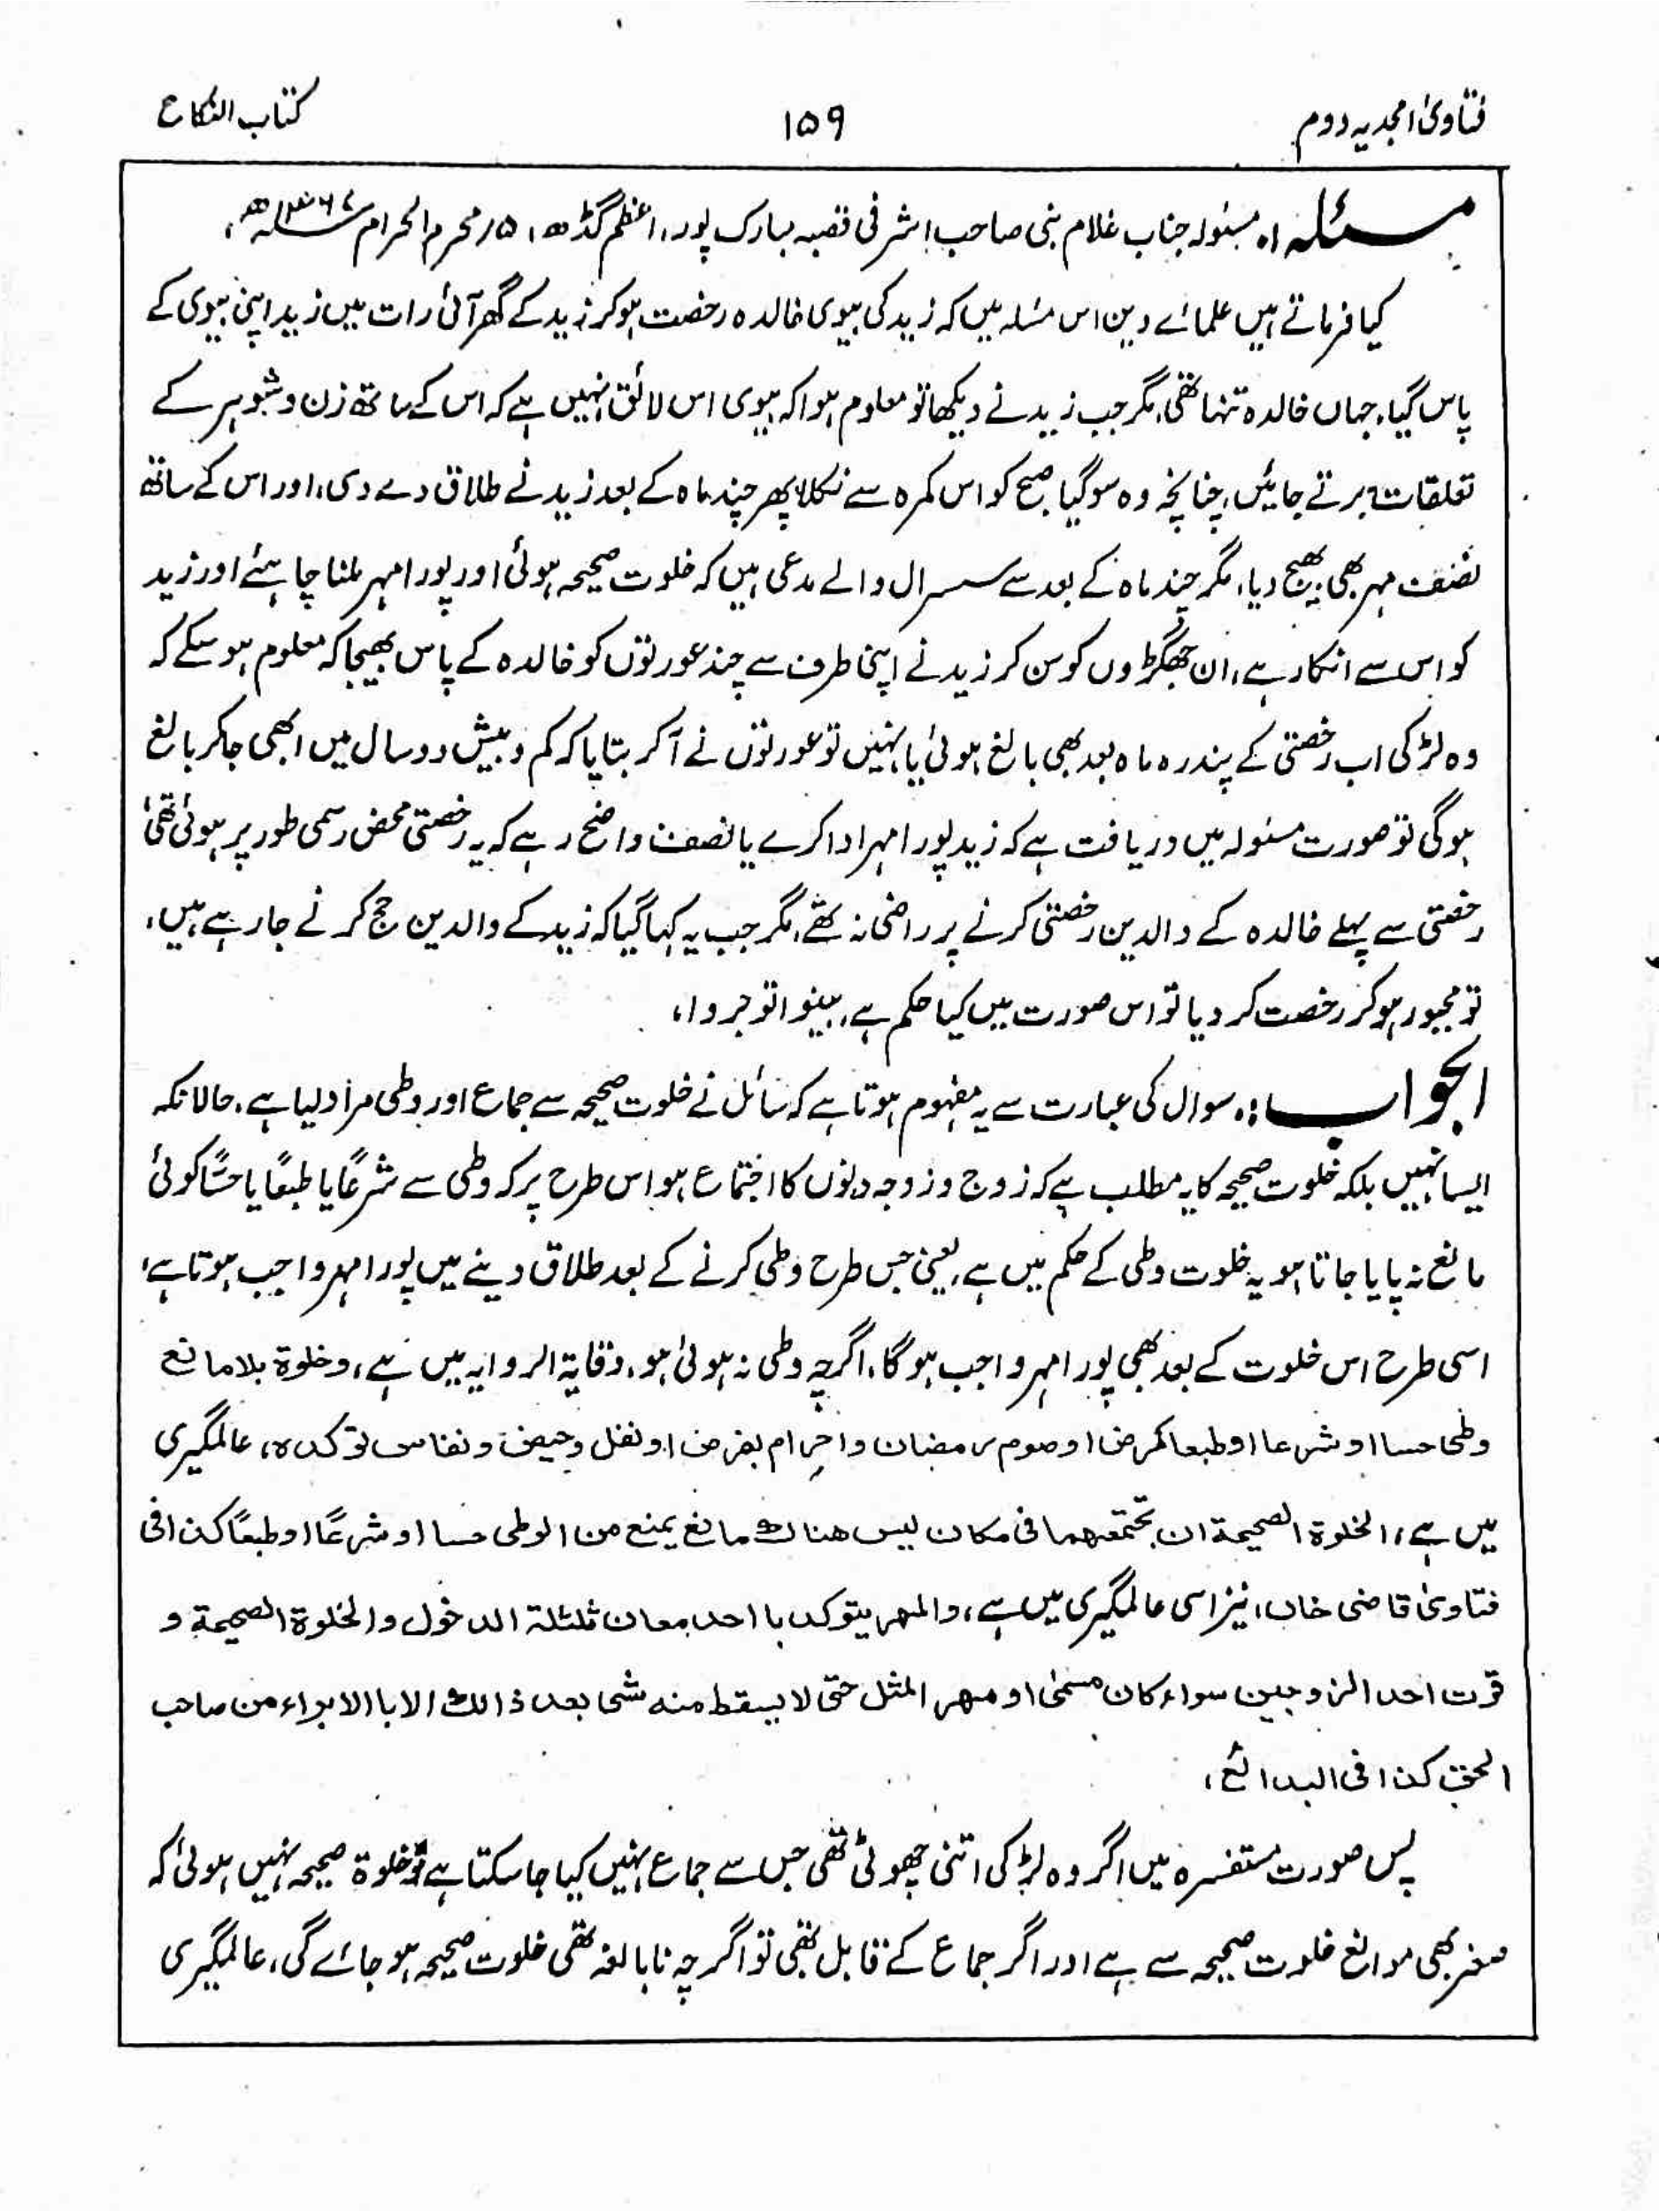 فتاویٰ امجدیہ دوم
۱۵۹
کتاب النکاح
مسئلہ ۱ ؎ مسئولہ جناب غلام نبی صاحب اشرفی قصبہ مبارک پور، اعظم گڈھ، ۱۵؍ محرم الحرام ۱۳۶۷ھ،
کیا فرماتے ہیں علمائے دین اس مسئلہ میں کہ زید کی بیوی خالدہ رخصت ہو کر زید کے گھر آئی رات میں زید اپنی بیوی کے
پاس گیا، جہاں خالدہ تنہا تھی، مگر جب زید نے دیکھا تو معلوم ہوا کہ بیوی اس لائق نہیں ہے کہ اس کے ساتھ زن و شوہر کے
تعلقات برتے جائیں، چنانچہ وہ سو گیا صبح کو اس کمرہ سے نکلا پھر چند ماہ کے بعد زید نے طلاق دے دی، اور اس کے ساتھ
نصف مہر بھی بھیج دیا، مگر چند ماہ کے بعد سے سسرال والے مدعی ہیں کہ خلوت صحیحہ ہوئی اور پورا مہر ملنا چاہئے اور زید
کو اس سے انکار ہے، ان جھگڑوں کو سن کر زید نے اپنی طرف سے چند عورتوں کو خالدہ کے پاس بھیجا کہ معلوم ہو سکے کہ
وہ لڑکی اب رخصتی کے پندرہ ماہ بعد بھی بالغ ہوئی یا نہیں تو عورتوں نے آکر بتایا کہ کم و بیش دو سال میں ابھی جاکر بالغ
ہوگی تو صورت مسئولہ میں دریافت ہے کہ زید پورا مہر ادا کرے یا نصف واضح رہے کہ یہ رخصتی محض رسمی طور پر ہوئی تھی
رخصتی سے پہلے خالدہ کے والدین رخصتی کرنے پر راضی نہ تھے، مگر جب یہ کہا گیا کہ زید کے والدین حج کرنے جا رہے ہیں،
تو مجبور ہو کر رخصت کر دیا تو اس صورت میں کیا حکم ہے، بینوا توجروا،
الجواب :۔ سوال کی عبارت سے یہ مفہوم ہوتا ہے کہ سائل نے خلوت صحیحہ سے جماع اور وطی مراد لیا ہے، حالانکہ
ایسا نہیں بلکہ خلوت صحیحہ کا یہ مطلب ہے کہ زوج و زوجہ دونوں کا اجتماع ہو اس طرح پر کہ وطی سے شرعًا یا طبعًا یا حسًّا کوئی
مانع نہ پایا جاتا ہو یہ خلوت وطی کے حکم میں ہے، یعنی جس طرح وطی کرنے کے بعد طلاق دینے میں پورا مہر واجب ہوتا ہے،
اسی طرح اس خلوت کے بعد بھی پورا مہر واجب ہوگا، اگرچہ وطی نہ ہوئی ہو، وقایۃ الروایہ میں ہے، وخلوۃ بلا مانع
وطی حسا او شرعا او طبعا کمرض او صوم رمضان و احرام بفرض او نفل وحیض و نفاس توکدہ، عالمگیری
میں ہے، الخلوۃ الصحیحۃ ان تجتمعہما فی مکان لیس ھناك مانع یمنع من الوطی حسا او شرعًا او طبعًا کذا فی
فتاویٰ قاضی خاں، نیز اسی عالمگیری میں ہے، والمھر یتوکد باحد معان ثلثلۃ الدخول والخلوۃ الصحیحۃ و
قرت احد الزوجین سواء کان مسمیٰ او مھر المثل حتی لا یسقط منہ شئ بعد ذالك الا باالابراء من صاحب
الحق کذا فی البدائع،
پس صورت مستفسرہ میں اگر وہ لڑکی اتنی چھوٹی تھی جس سے جماع نہیں کیا جا سکتا ہے تو خلوۃ صحیحہ نہیں ہوئی کہ
صغر بھی موانع خلوت صحیحہ سے ہے اور اگر جماع کے قابل تھی تو اگرچہ نابالغہ تھی خلوت صحیحہ ہو جائے گی، عالمگیری